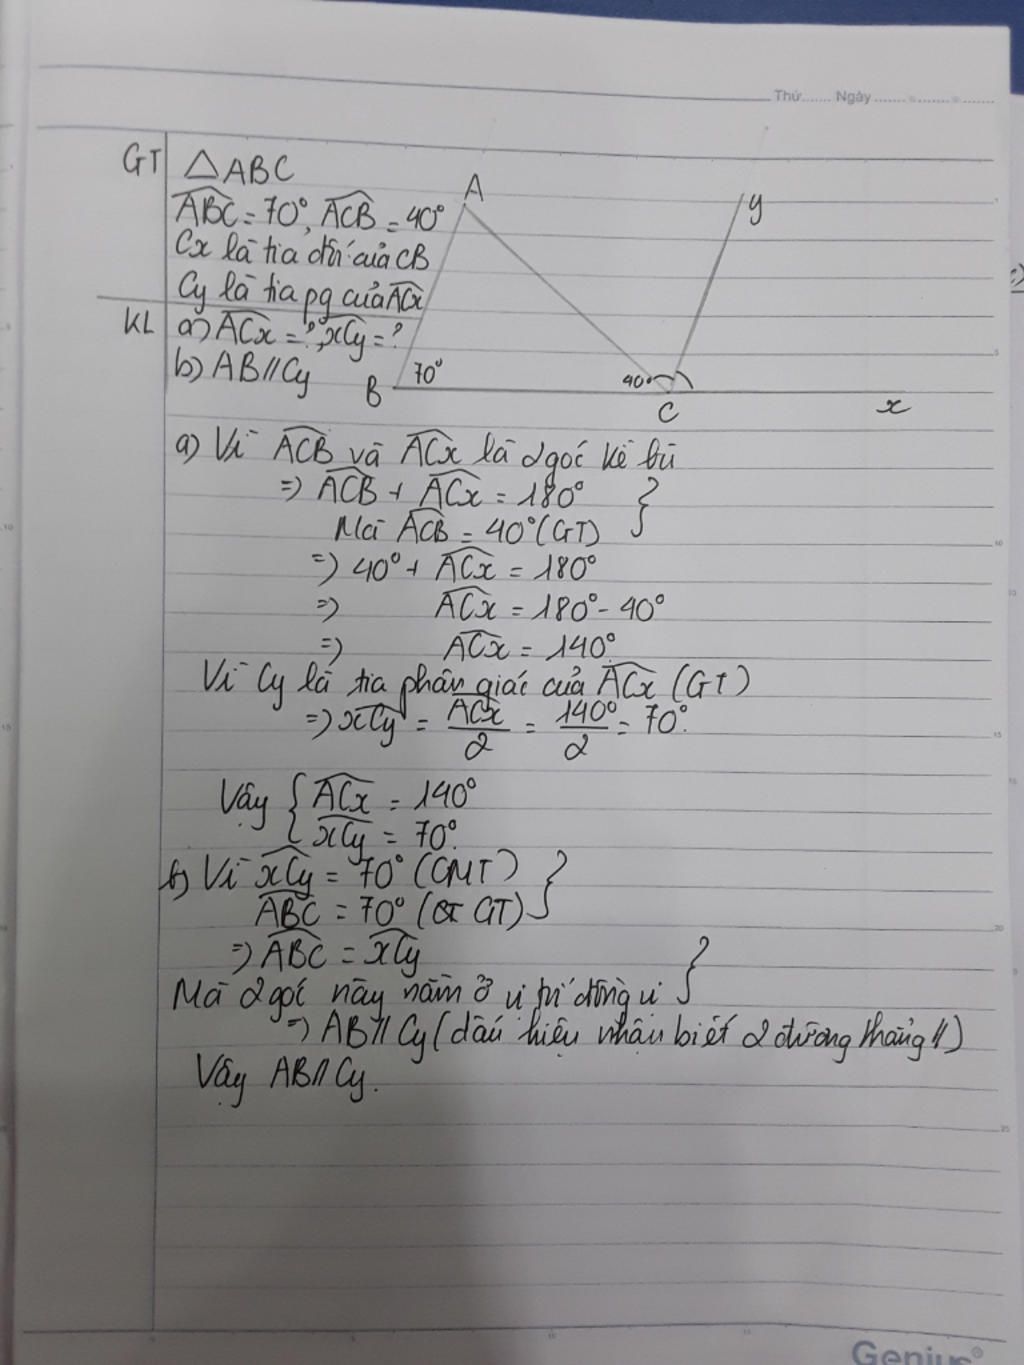 Thứ....... Ngày ....... ....... .......
GT △ABC
ABC = 70°, ACB = 40°
Cx là tia đối của CB
Cy là tia pg của ACx
KL a) ACx = ?, xCy = ?
b) AB // Cy
A
y
B
70°
40°
C
x
a) Vì ACB và ACx là 2 góc kề bù
=> ACB + ACx = 180° }
Mà ACB = 40° (GT)
=> 40° + ACx = 180°
=> ACx = 180° - 40°
=> ACx = 140°
Vì Cy là tia phân giác của ACx (GT)
=> xCy = ACx/2 = 140°/2 = 70°.
Vậy { ACx = 140°
xCy = 70°.
b) Vì xCy = 70° (CMT) }
ABC = 70° (GT)
=> ABC = xCy }
Mà 2 góc này nằm ở vị trí đồng vị
=> AB // Cy (dấu hiệu nhận biết 2 đường thẳng //)
Vậy AB // Cy.
Genius